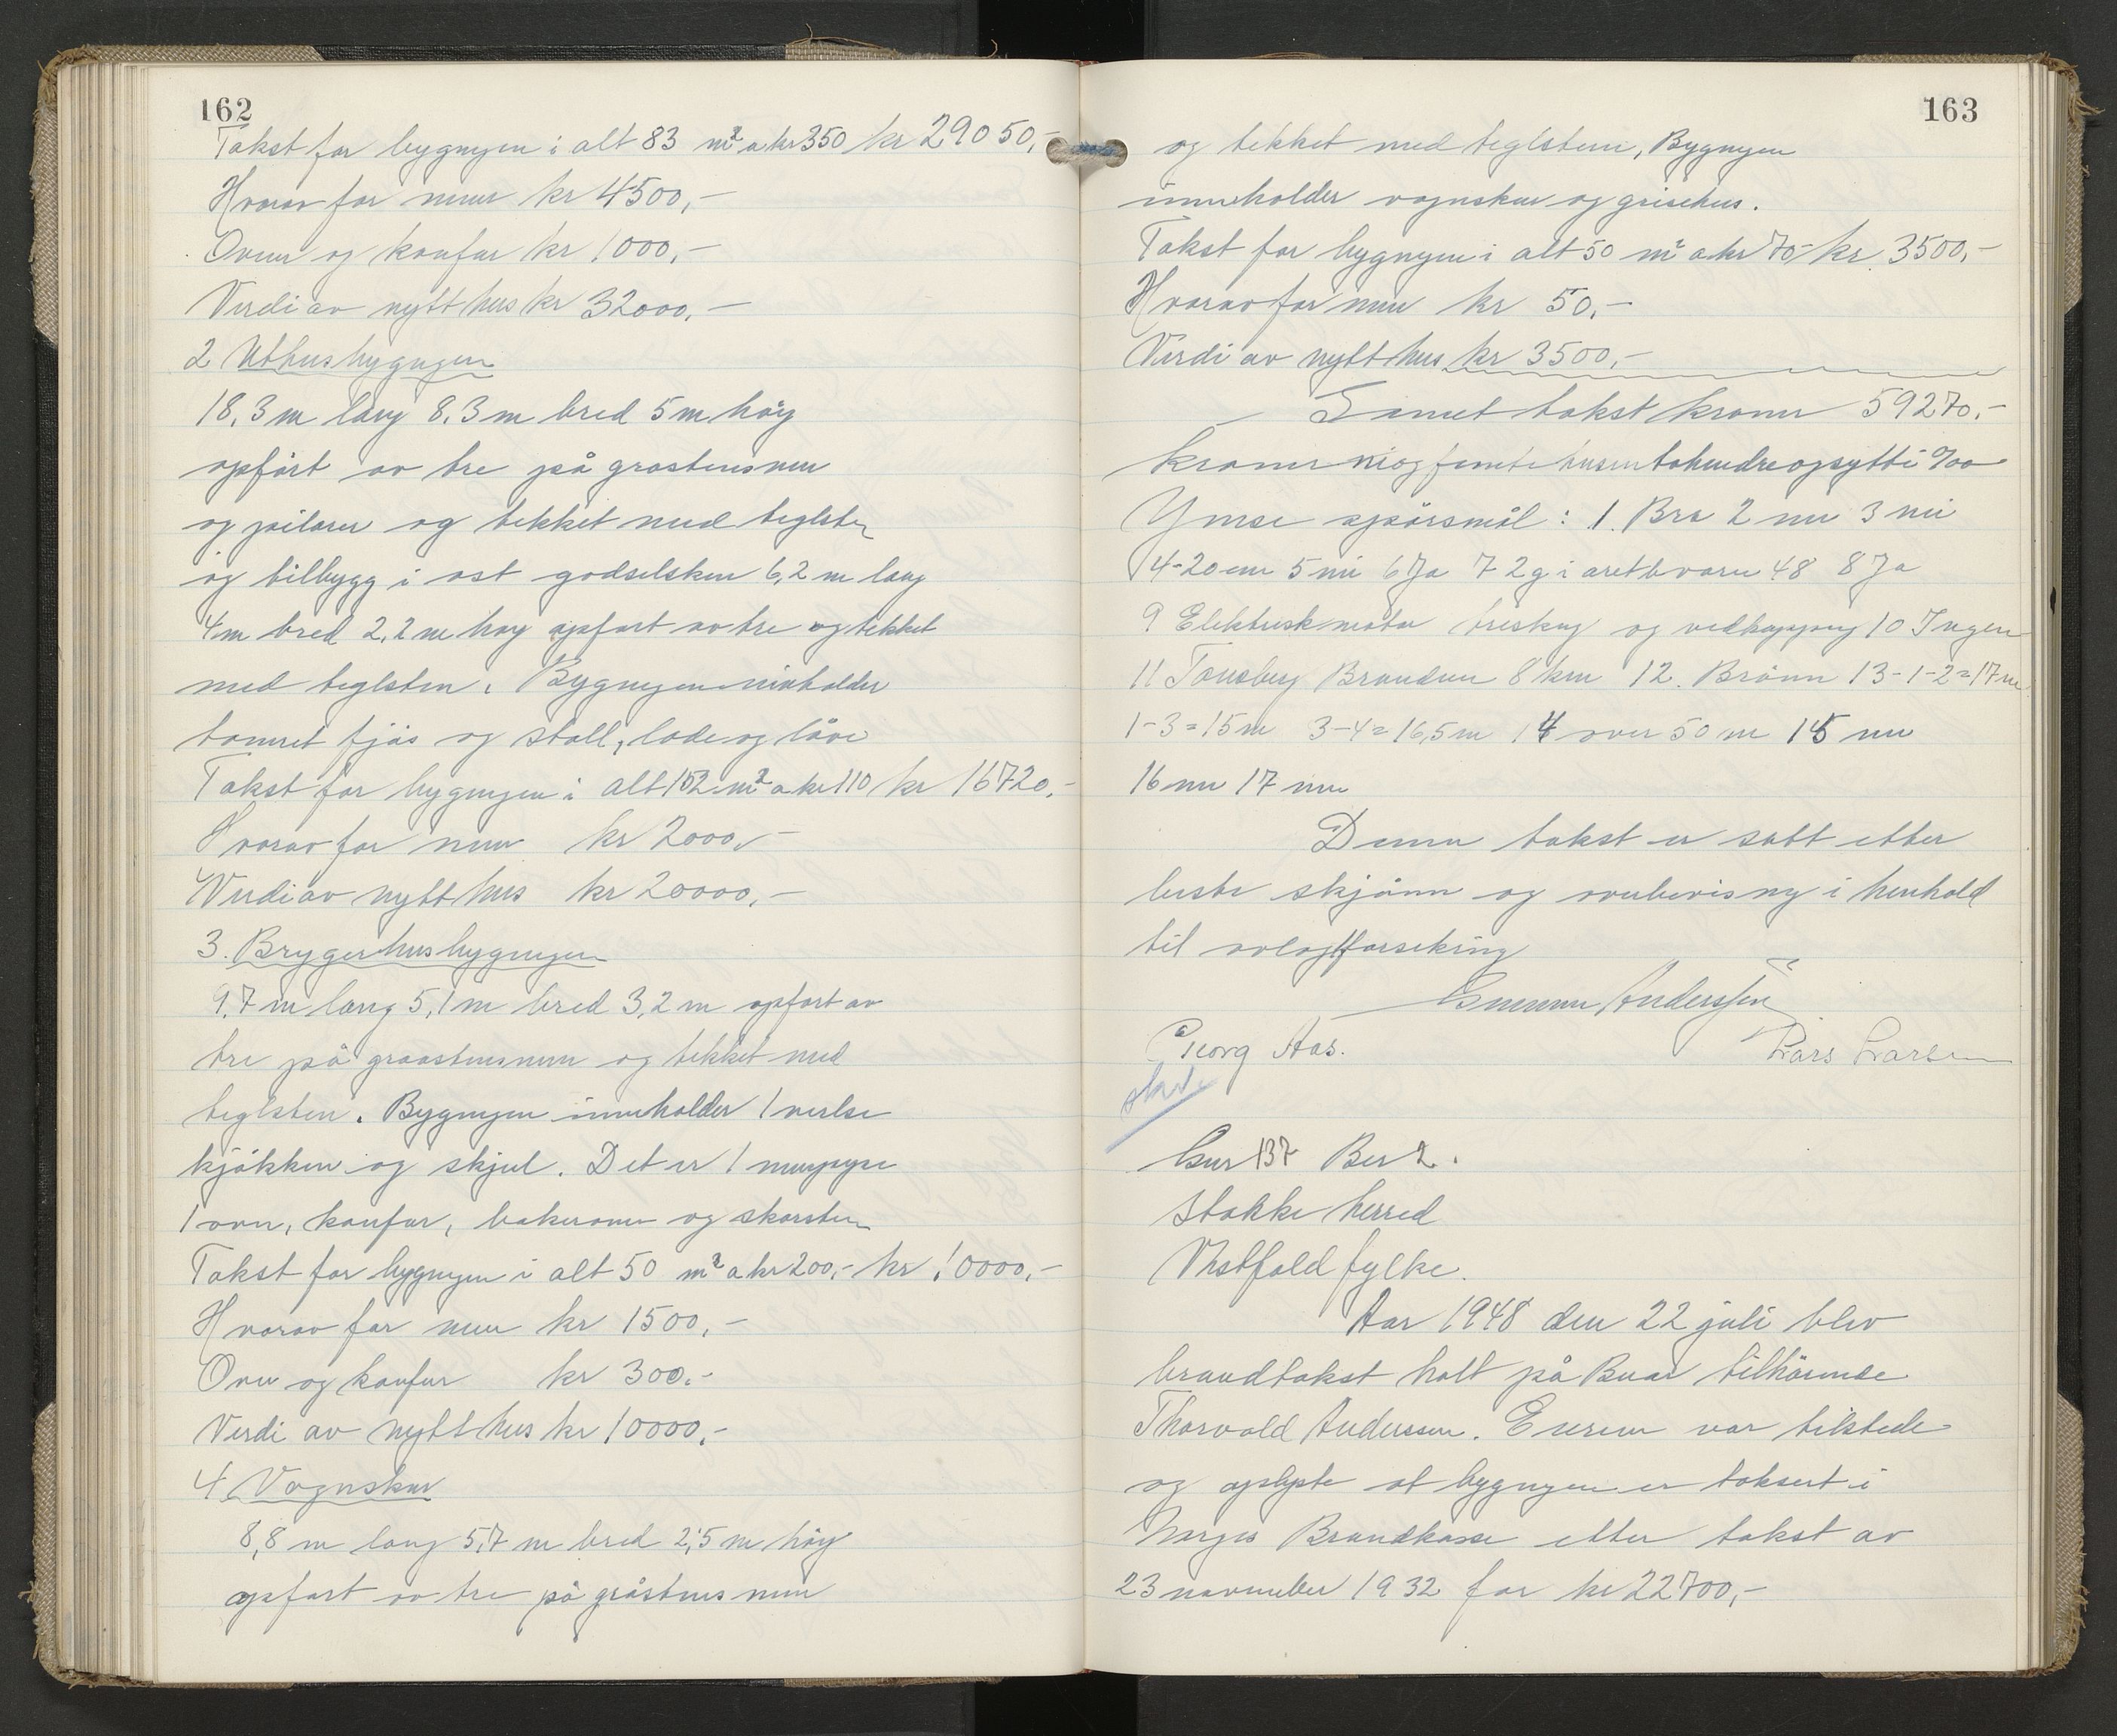 162
Takst for bygnyen i alt 83 m² a kr 350 kr 29050,-
Hvorav for mur kr 4500,-
Ovner og komfur kr 1000,-
Verdi av nytt hus kr 32000,-
2 Uthusbygnyen
18,3 m lang 8,3 m bred 5 m høy
opført av tre på grastensmur
og pilarer og tekket med teglsten
og tilbygg i ost godselskur 6,2 m lang
4 m bred 2,2 m høy opført av tre og tekket
med teglsten. Bygnyen inneholder
tomret fjøs og stall, lade og låve
Takst for bygnyen i alt 152 m² a kr 110 kr 16720,-
Hvorav for mur kr 2000,-
Verdi av nytt hus kr 20000,-
3. Brygerhusbygnyen
9,7 m lang 5,1 m bred 3,2 m opført av
tre på graastensmur og tekket med
teglsten. Bygnyen inneholder 1 verlse
kjøkken og skjul. Det er 1 murpipe
1 ovn, komfur, bakerovn og skorsten
Takst for bygnyen i alt 50 m² a kr 200,- kr 10000,-
Hvorav for mur kr 1500,-
Ovn og komfur kr 300,-
Verdi av nytt hus kr 10000,-
4 Vognskur
8,8 m lang 5,7 m bred 2,5 m høy
opført av tre på gråstens mur
163
og tekket med teglsten, Bygnyen
inneholder vognskur og grisehus.
Takst for bygnyen i alt 50 m² a kr 70,- kr 3500,-
Hvorav for mur kr 50,-
Verdi av nytt hus kr 3500,-
Samet takst kroner 59270,-
kroner niogfemtetusentohundreogsytti %oo
Ymse spørsmål: 1. Bra 2 nei 3 nei
4-20 cm 5 nei 6 Ja 7 2 g i aret 48 8 Ja
9 Elektrisk motor treskng og vedkapping 10 Ingen
11 Tønsberg Brandven 8 km 12. Brønn 13-1-2=17 m
1-3=15 m 3-4=16,5 m 14 over 50 m 15 nei
16 nei 17 nei
Denne takst er satt etter
beste skjønn og overbevisning i henhold
til avlagt forsekring
Gunnar Anderssen
Georg Aas. Lars Larsen
Gnr 137 Bnr 2.
Stokke herred
Vestfold fylke.
Aar 1948 den 22 juli blev
brandtakst holt på Buar tilhørende
Thorvald Anderssen. Eieren var tilstede
og oplyste at bygnyen er taksert i
Norges Brandkasse etter takst av
23 november 1932 for kr 22700,-